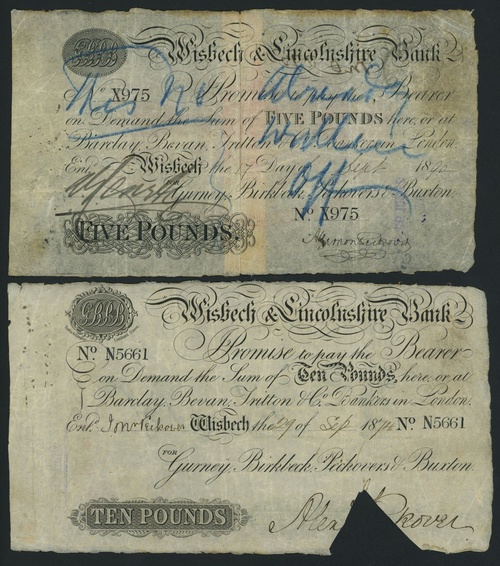 GBPB
Wisbech & Lincolnshire Bank
No X975 Promise to pay the Bearer
on Demand the Sum of FIVE POUNDS here, or at
Barclay, Bevan, Tritton & Co. Bankers in London.
Entd. Wisbech the 17 Day of Sept 18
FOR
Gurney, Birkbeck, Peckovers & Buxton
No X975
FIVE POUNDS.
This No
GBPB
Wisbech & Lincolnshire Bank
No N5661
Promise to pay the Bearer
on Demand the Sum of Ten Pounds, here, or at
Barclay, Bevan, Tritton & Co. Bankers in London.
Entd. Wisbech the 29 of Sep 18 No N5661
FOR
Gurney, Birkbeck, Peckovers & Buxton
TEN POUNDS
Alex Peckover